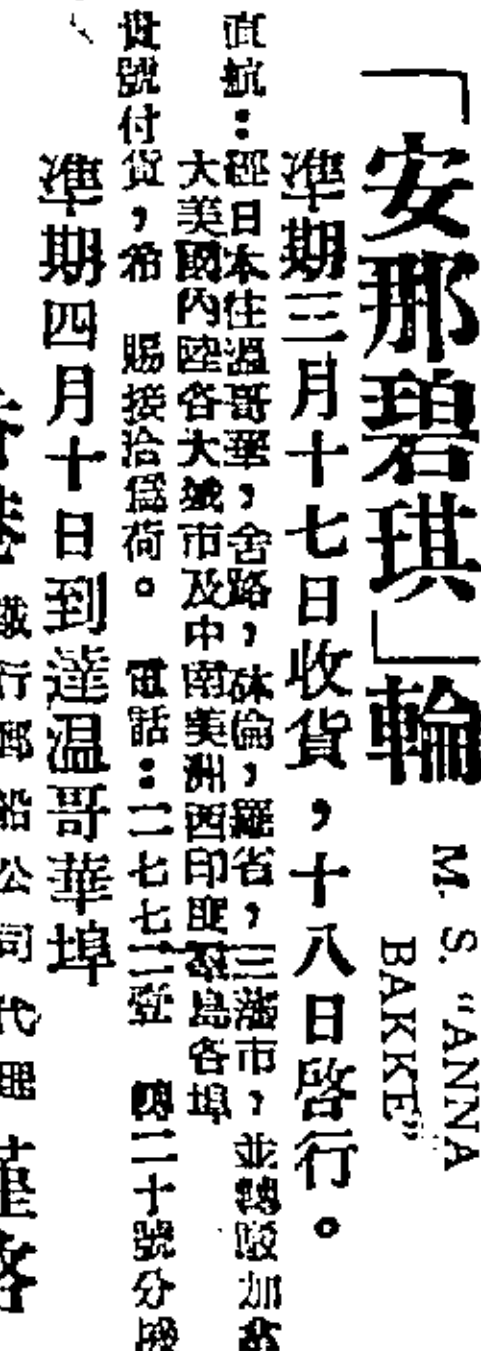 「安那碧琪」輪
M. S. "ANNA
BAKKE"
準期三月十七日收貨，十八日啓行。
直航：經日本往溫哥華，舍路，砵倫，羅省，三藩市，並轉駁加拿
大美國內陸各大城市及中南美洲西印度羣島各埠
貴號付貨，希 賜接洽爲荷。 電話：二七七二壹 轉二十號分機
準期四月十日到達温哥華埠
香港 鐵行郵船公司代理 謹啓